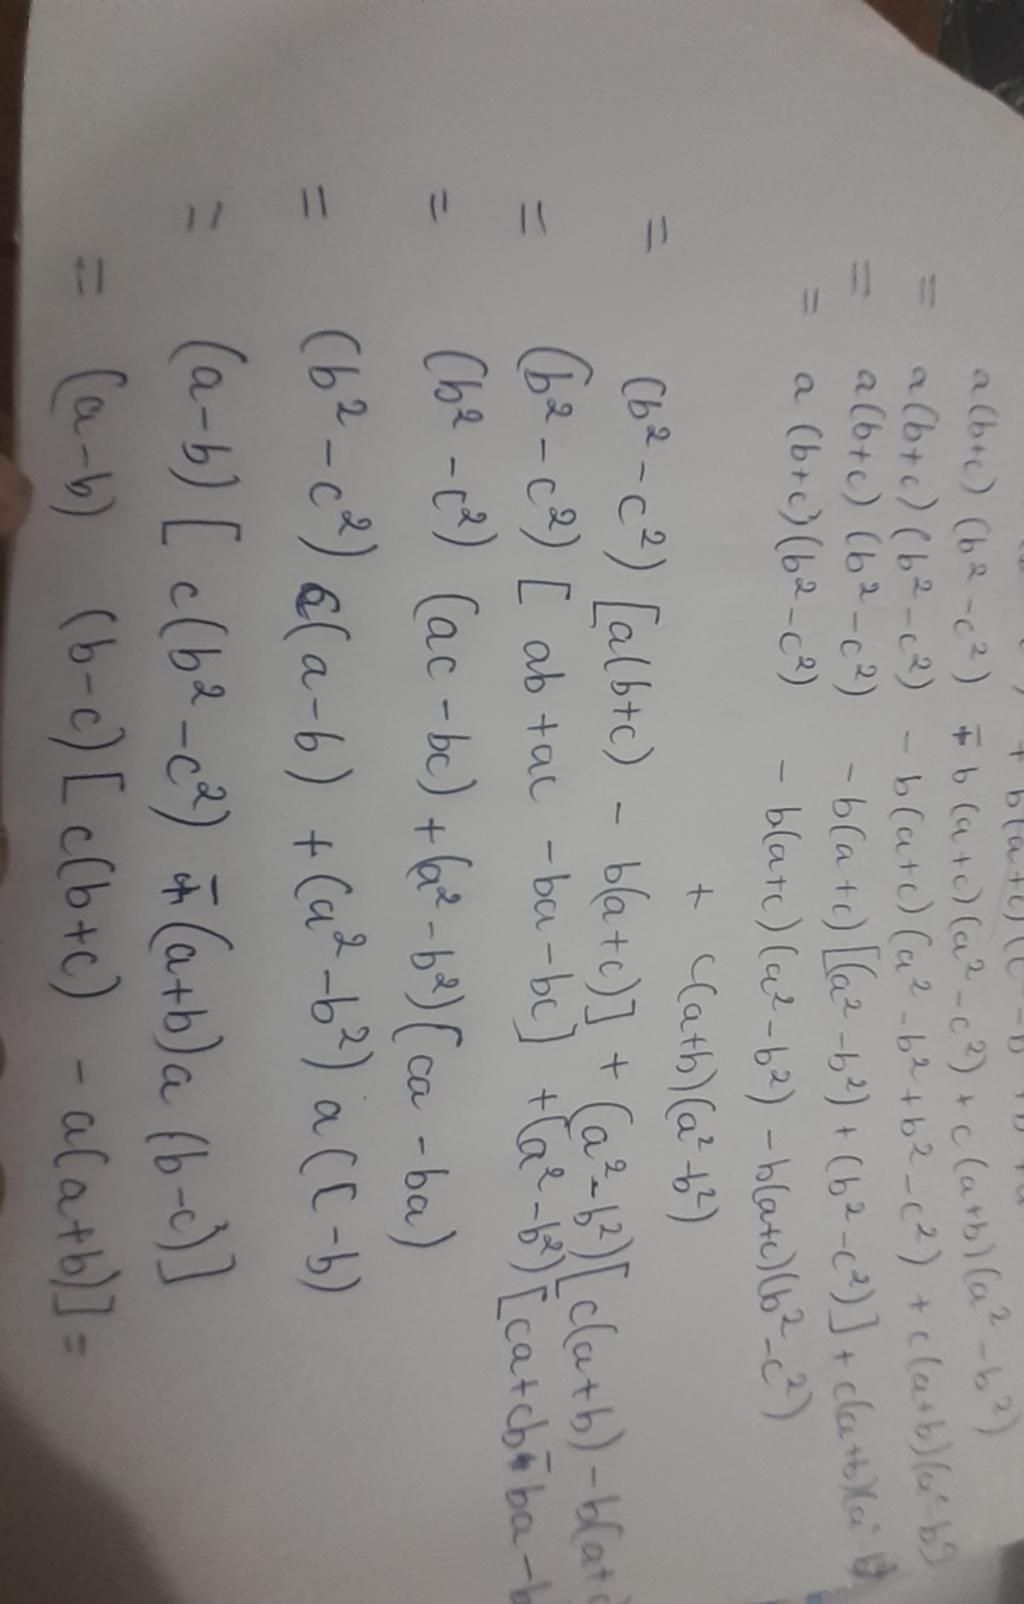 + b(a+c)(c² - b
a(b+c) (b² - c²) - b(a+c)(a² - c²) + c(a+b)(a² - b²)
= a(b+c)(b² - c²) - b(a+c)(a² - b² + b² - c²) + c(a+b)(a² - b²)
= a(b+c)(b² - c²) - b(a+c)[(a² - b²) + (b² - c²)] + c(a+b)(a² - b²)
= a(b+c)(b² - c²) - b(a+c)(a² - b²) - b(a+c)(b² - c²)
+ c(a+b)(a² - b²)
= (b² - c²)[a(b+c) - b(a+c)] + (a² - b²)[c(a+b) - b(a+c
= (b² - c²)[ab + ac - ba - bc] + (a² - b²)[ca + cb - ba - b
= (b² - c²)(ac - bc) + (a² - b²)(ca - ba)
= (b² - c²) c(a - b) + (a² - b²) a(c - b)
= (a - b)[c(b² - c²) - (a+b)a(b - c)]
= (a - b) (b - c)[c(b+c) - a(a+b)] =